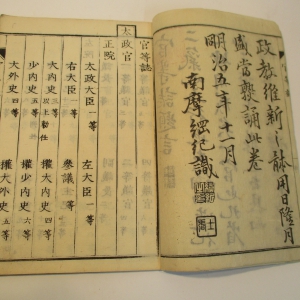 政教維新之訣用日隆月
盛當熟誦此卷
明治五年十一月
南摩綱紀識
官等誌
太政官
正院
太政大臣 一等
左大臣 一等
右大臣 一等
參議 一等
大內史 三等
權大內史 四等
少內史 五等
權少內史 六等
大外史 四等
權大外史 五等